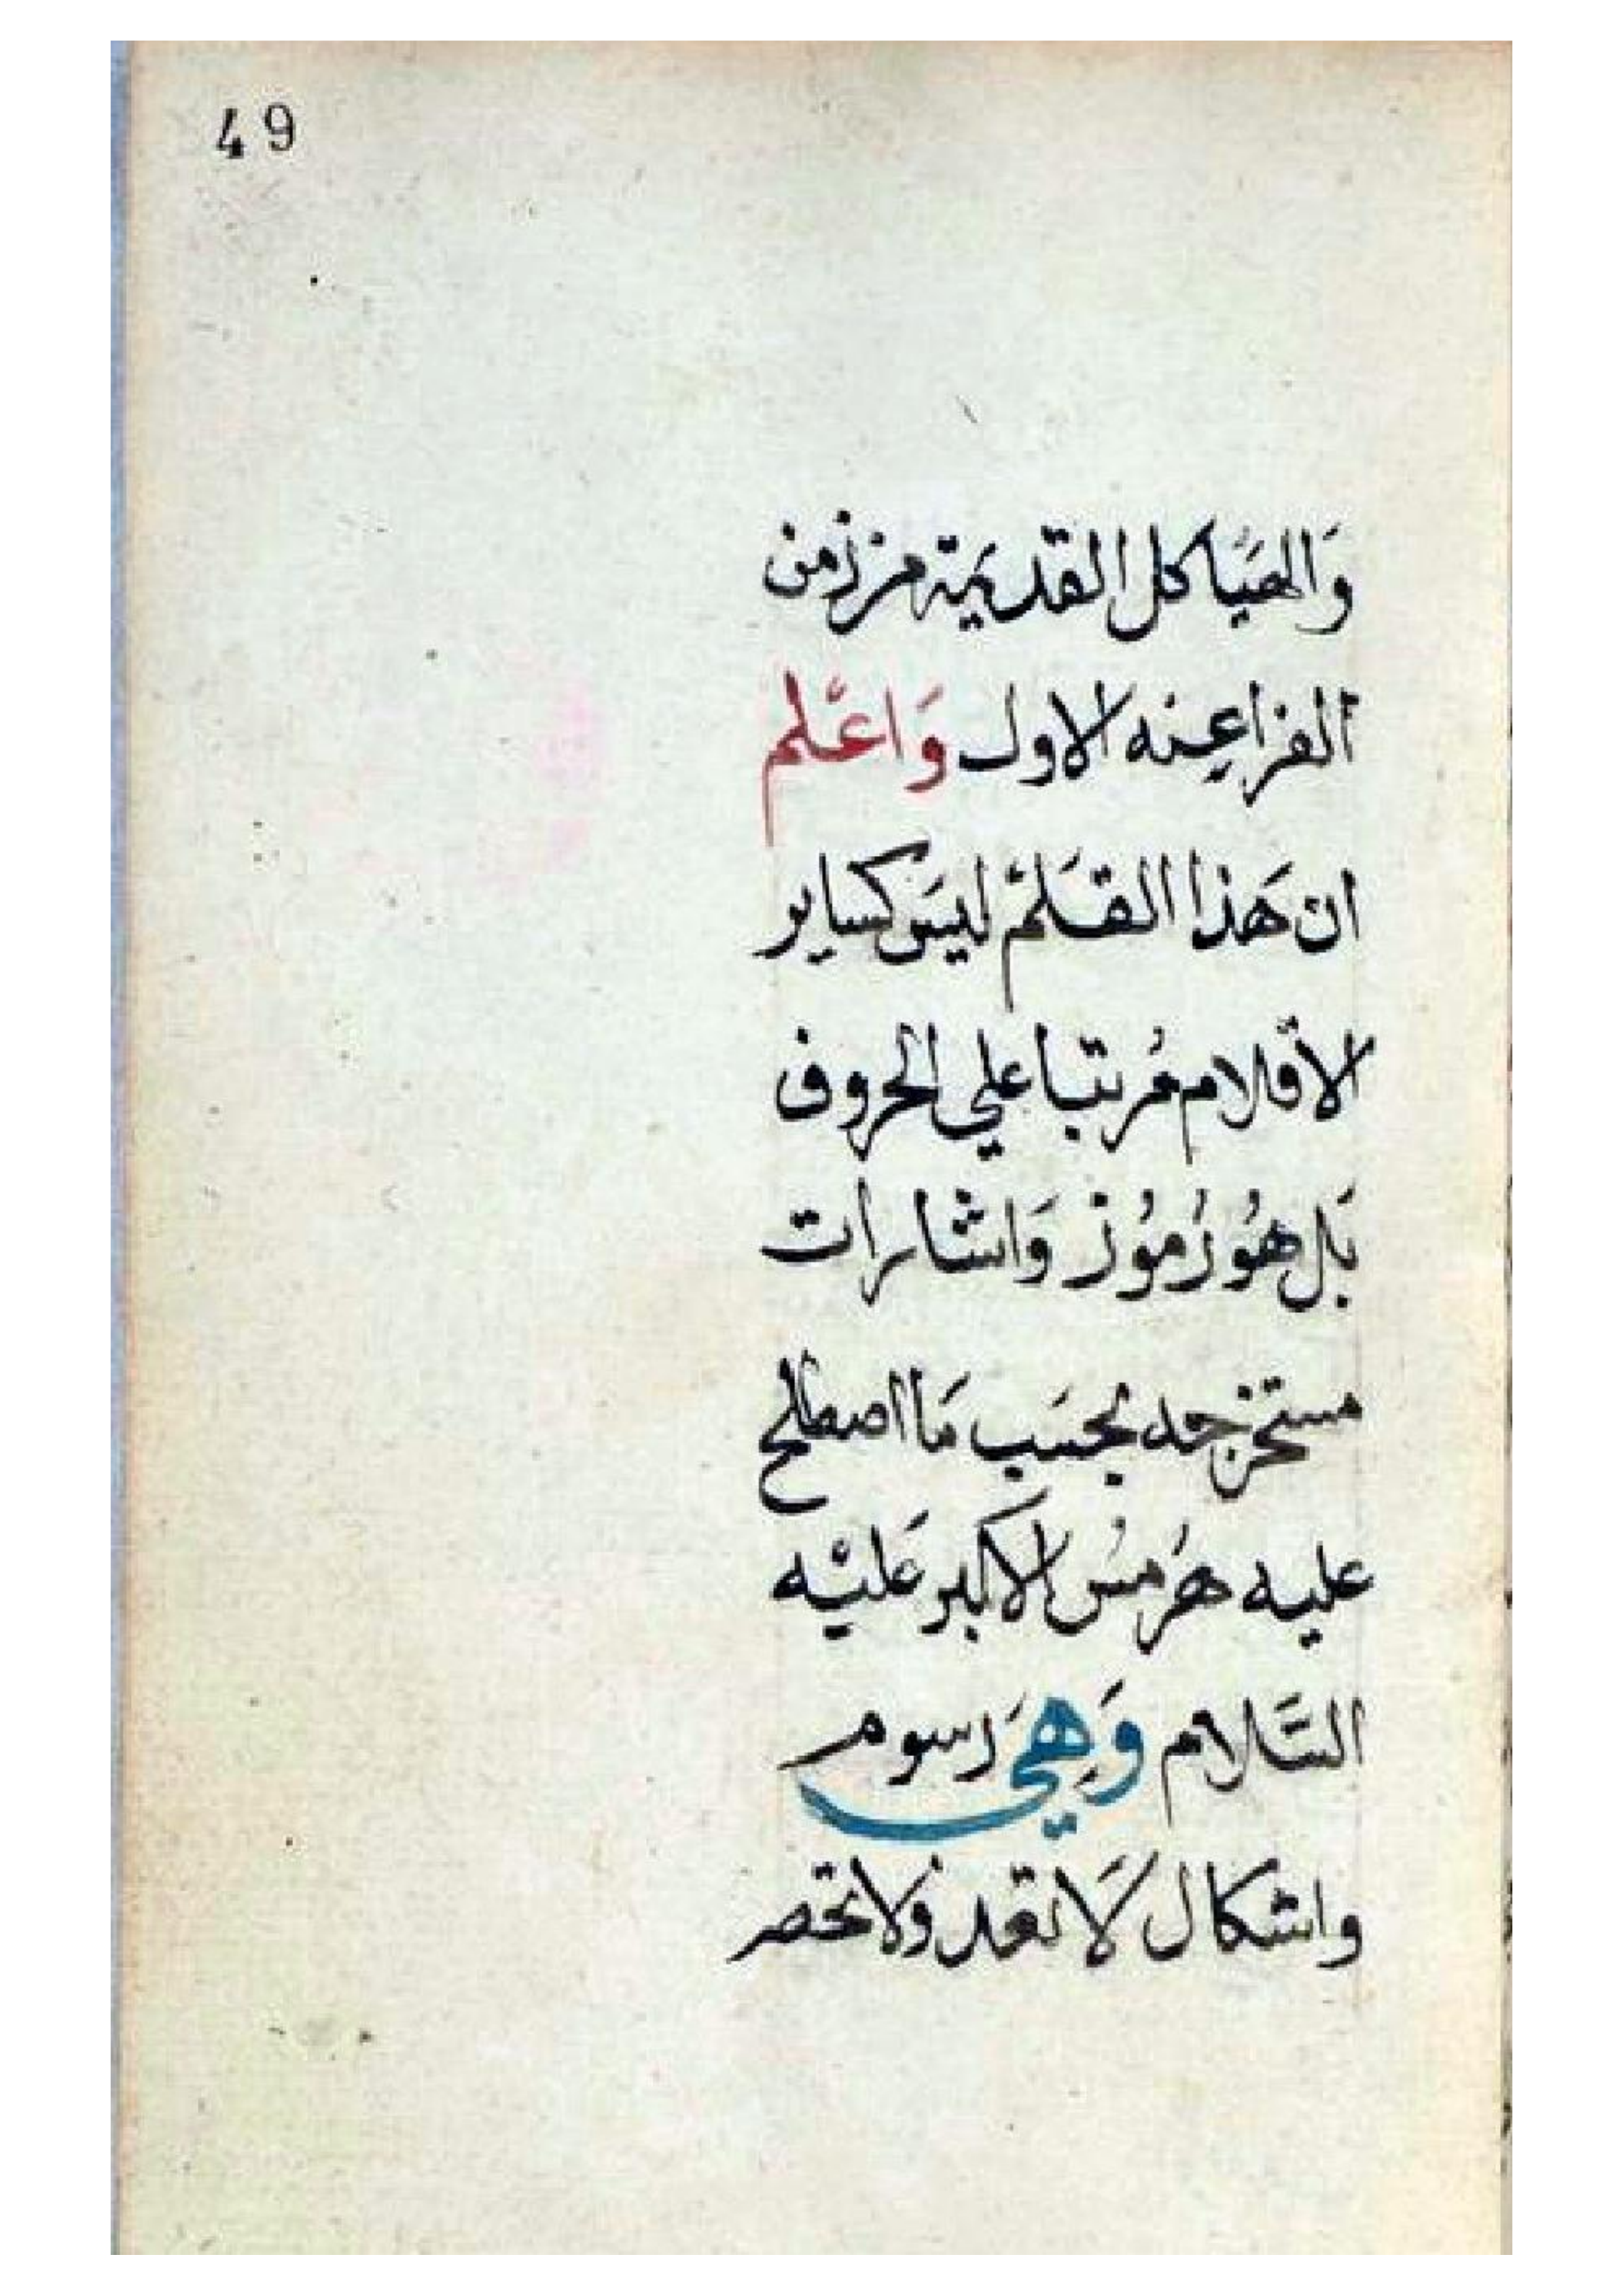 49
وَالهيَاكل القديمَة من زمن
الفراعِنه الاول وَاعْلم
ان هَذا القَلمْ ليسَ كساير
الأقلام مُرتبا علي الحروف
بَل هوُ رُموُز وَاشارات
مستخرجه بحسَب مَا اصطلح
عليه هَرمسُ الاكبر عَليْه
السَّلام وَهِي رَسوم
واشكال لاَ تعد ولا تحصر